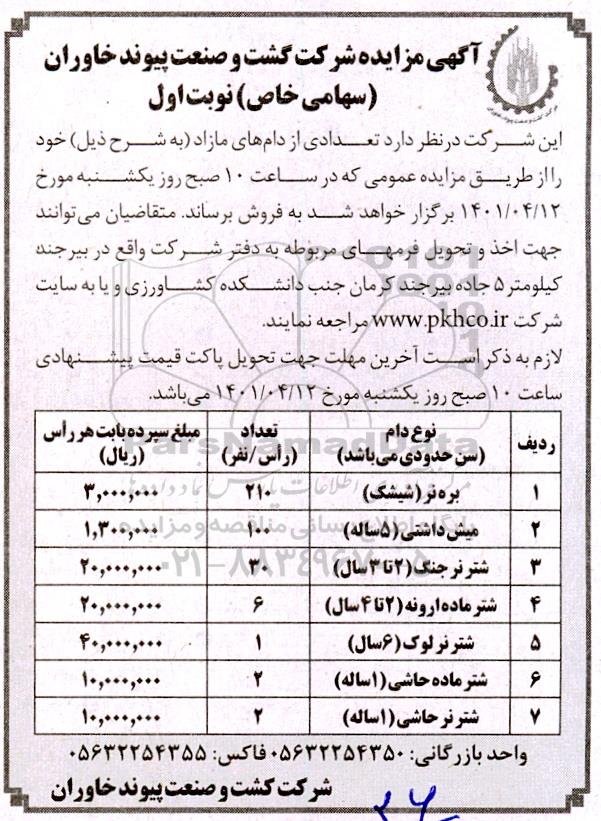 آگهی مزایده شرکت گشت و صنعت پیوند خاوران
(سهامی خاص) نوبت اول
این شرکت درنظر دارد تعدادی از دام‌های مازاد (به شرح ذیل) خود
را از طریق مزایده عمومی که در ساعت ۱۰ صبح روز یکشنبه مورخ
۱۴۰۱/۰۴/۱۲ برگزار خواهد شد به فروش برساند. متقاضیان می‌توانند
جهت اخذ و تحویل فرمهای مربوطه به دفتر شرکت واقع در بیرجند
کیلومتر ۵ جاده بیرجند کرمان جنب دانشکده کشاورزی و یا به سایت
شرکت www.pkhco.ir مراجعه نمایند.
لازم به ذکر است آخرین مهلت جهت تحویل پاکت قیمت پیشنهادی
ساعت ۱۰ صبح روز یکشنبه مورخ ۱۴۰۱/۰۴/۱۲ می‌باشد.
ردیف نوع دام (سن حدودی می‌باشد) تعداد (رأس/نفر) مبلغ سپرده بابت هر رأس (ریال)
۱ بره نر (شیشک) ۲۱۰ ۳,۰۰۰,۰۰۰
۲ میش داشتی (۵ساله) ۱۰۰ ۱,۳۰۰,۰۰۰
۳ شتر نر جنگ (۲ تا ۳ سال) ۳۰ ۲۰,۰۰۰,۰۰۰
۴ شتر ماده ارونه (۲ تا ۴ سال) ۶ ۲۰,۰۰۰,۰۰۰
۵ شتر نر لوک (۶ سال) ۱ ۴۰,۰۰۰,۰۰۰
۶ شتر ماده حاشی (۱ساله) ۲ ۱۰,۰۰۰,۰۰۰
۷ شتر نر حاشی (۱ساله) ۲ ۱۰,۰۰۰,۰۰۰
ParsNamadData
۰۲۱-۸۸۳۴۹۶۷۰-۵
واحد بازرگانی: ۰۵۶۳۲۲۵۴۳۵۰ فاکس: ۰۵۶۳۲۲۵۴۳۵۵
شرکت کشت و صنعت پیوند خاوران